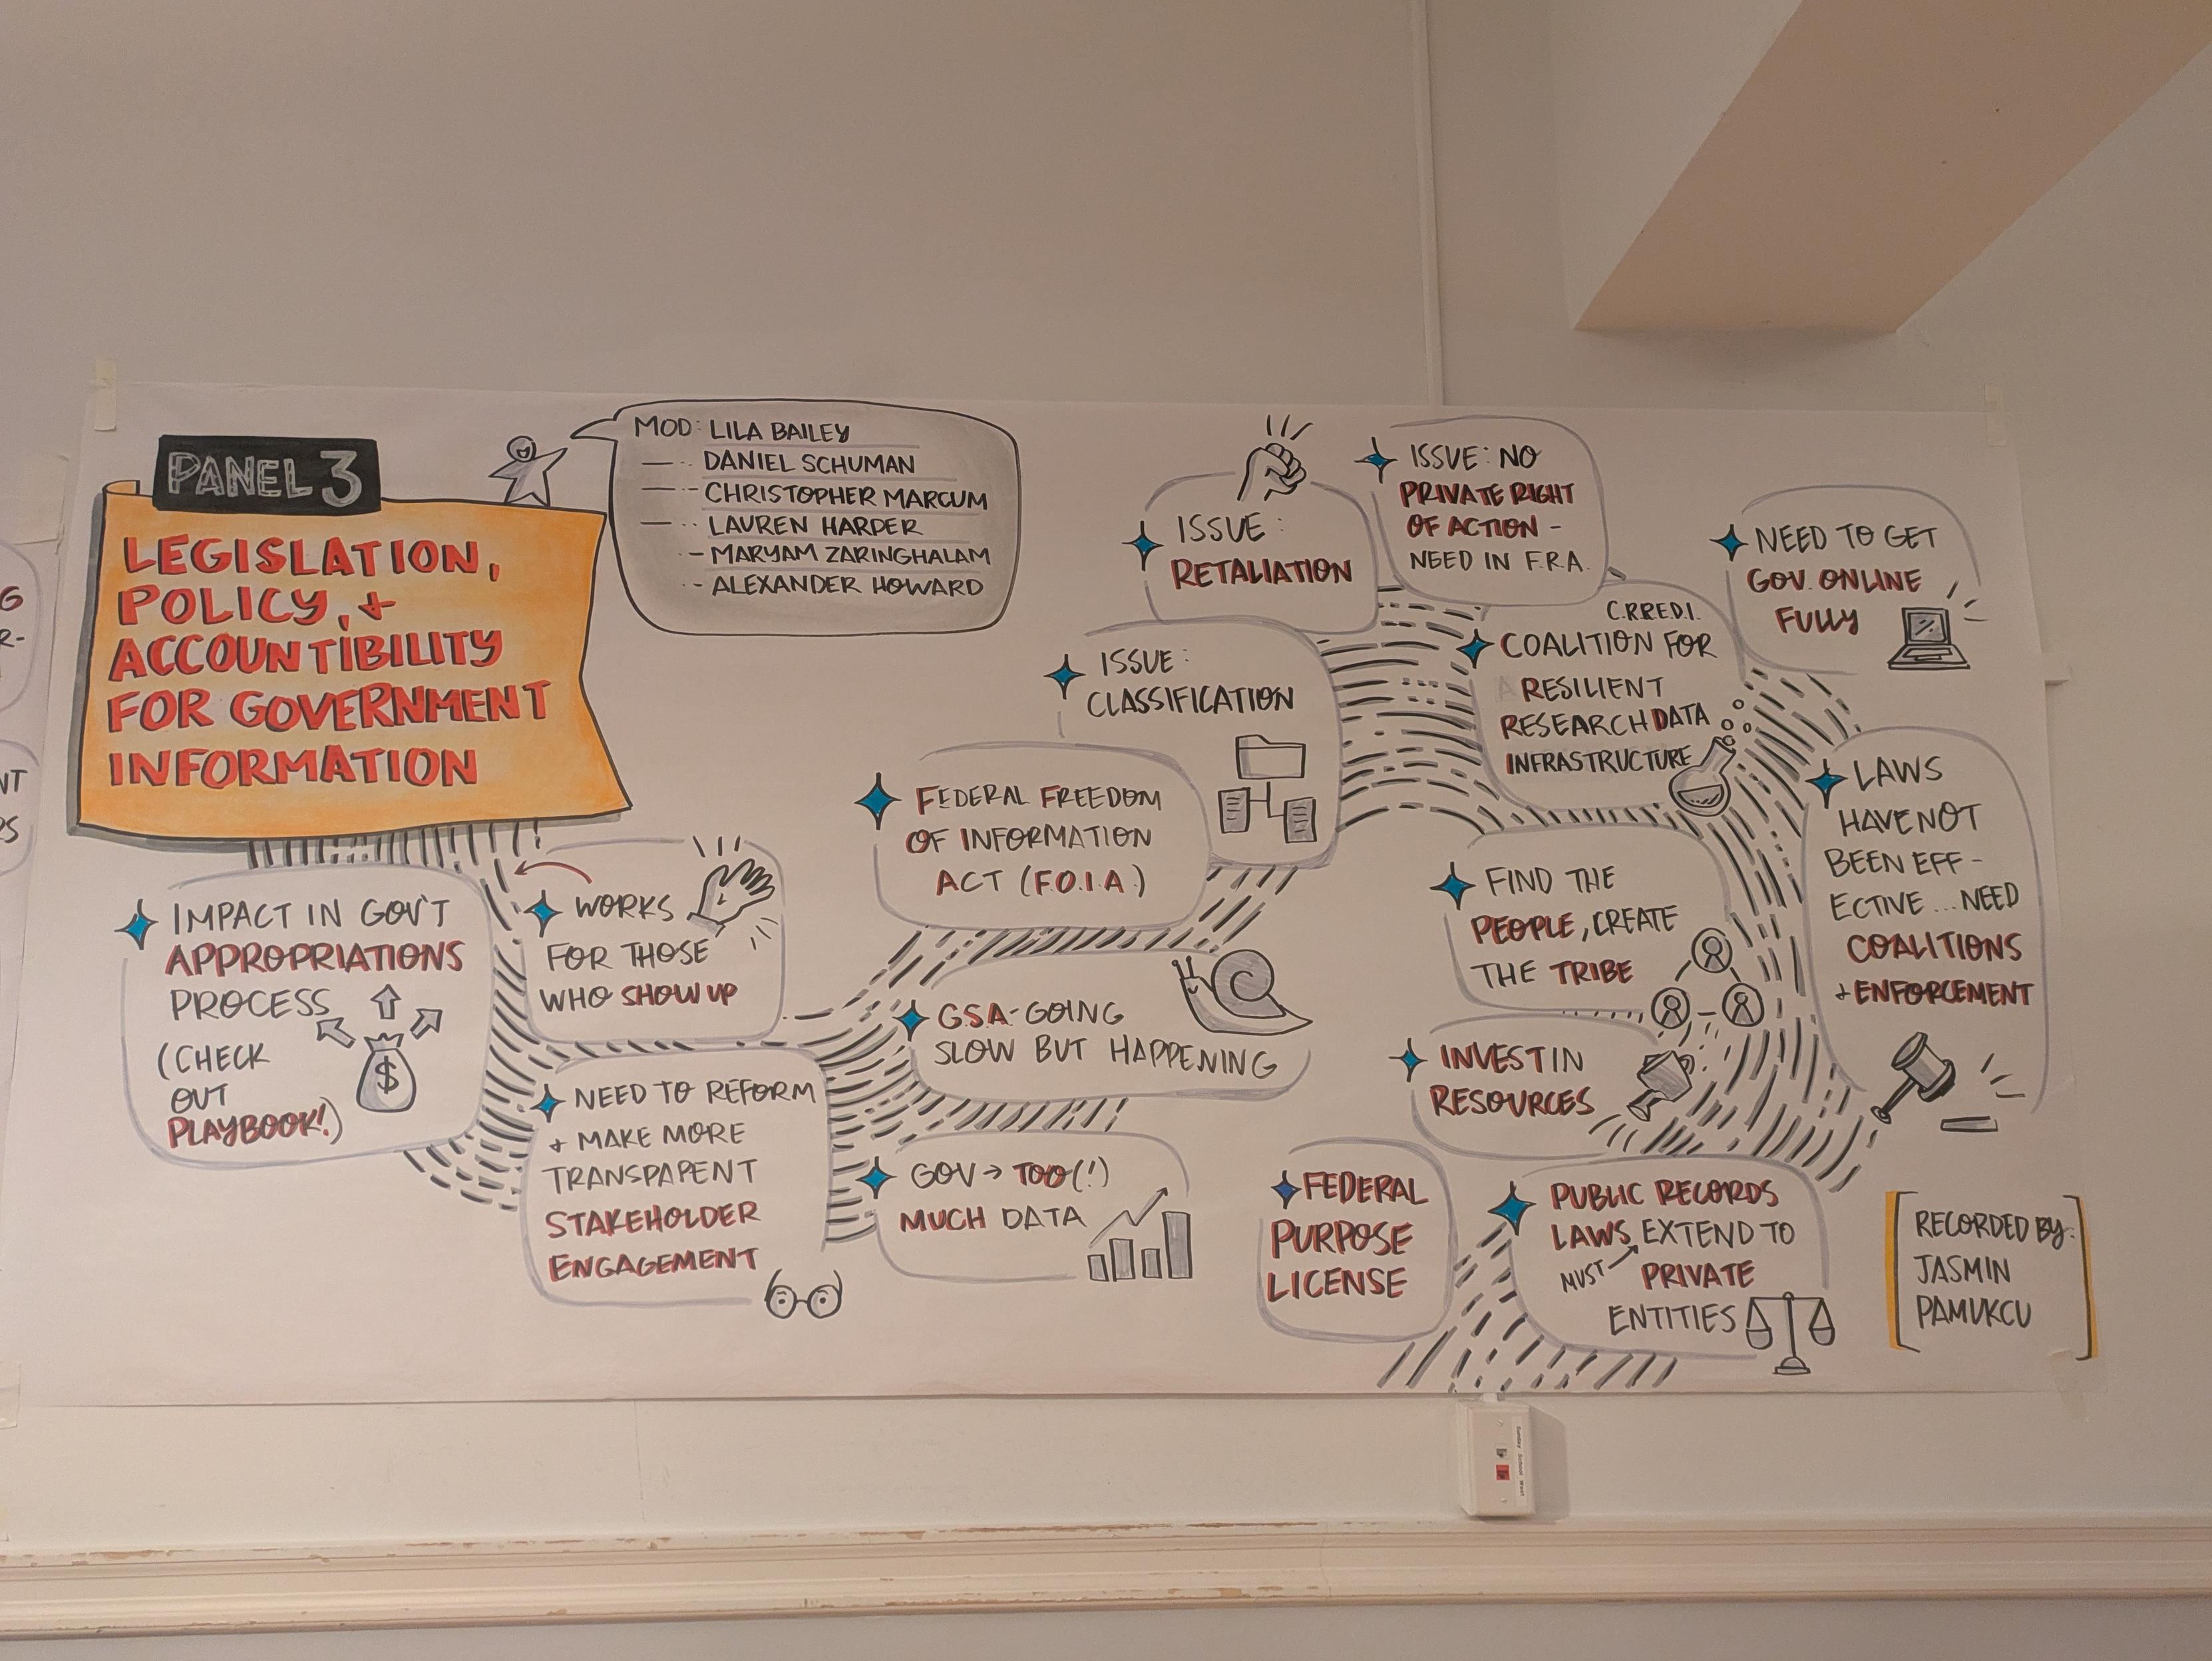 PANEL 3
LEGISLATION,
POLICY, +
ACCOUNTIBILITY
FOR GOVERNMENT
INFORMATION
MOD: LILA BAILEY
DANIEL SCHUMAN
CHRISTOPHER MARCUM
LAUREN HARPER
MARYAM ZARINGHALAM
ALEXANDER HOWARD
IMPACT IN GOV'T
APPROPRIATIONS
PROCESS
(CHECK
OUT
PLAYBOOK!)
$
WORKS
FOR THOSE
WHO SHOW UP
NEED TO REFORM
+ MAKE MORE
TRANSPARENT
STAKEHOLDER
ENGAGEMENT
FEDERAL FREEDOM
OF INFORMATION
ACT (F.O.I.A.)
GSA - GOING
SLOW BUT HAPPENING
GOV → TOO(!)
MUCH DATA
ISSUE:
CLASSIFICATION
ISSUE:
RETALIATION
ISSUE: NO
PRIVATE RIGHT
OF ACTION -
NEED IN F.R.A.
C.R.R.E.D.I.
COALITION FOR
A RESILIENT
RESEARCH DATA
INFRASTRUCTURE
NEED TO GET
GOV. ONLINE
FULLY
LAWS
HAVE NOT
BEEN EFF-
ECTIVE... NEED
COALITIONS
+ ENFORCEMENT
FIND THE
PEOPLE, CREATE
THE TRIBE
INVEST IN
RESOURCES
FEDERAL
PURPOSE
LICENSE
PUBLIC RECORDS
LAWS EXTEND TO
MUST PRIVATE
ENTITIES
RECORDED BY:
JASMIN
PAMUKCU
Sunday School West
G
R-
NT
RS